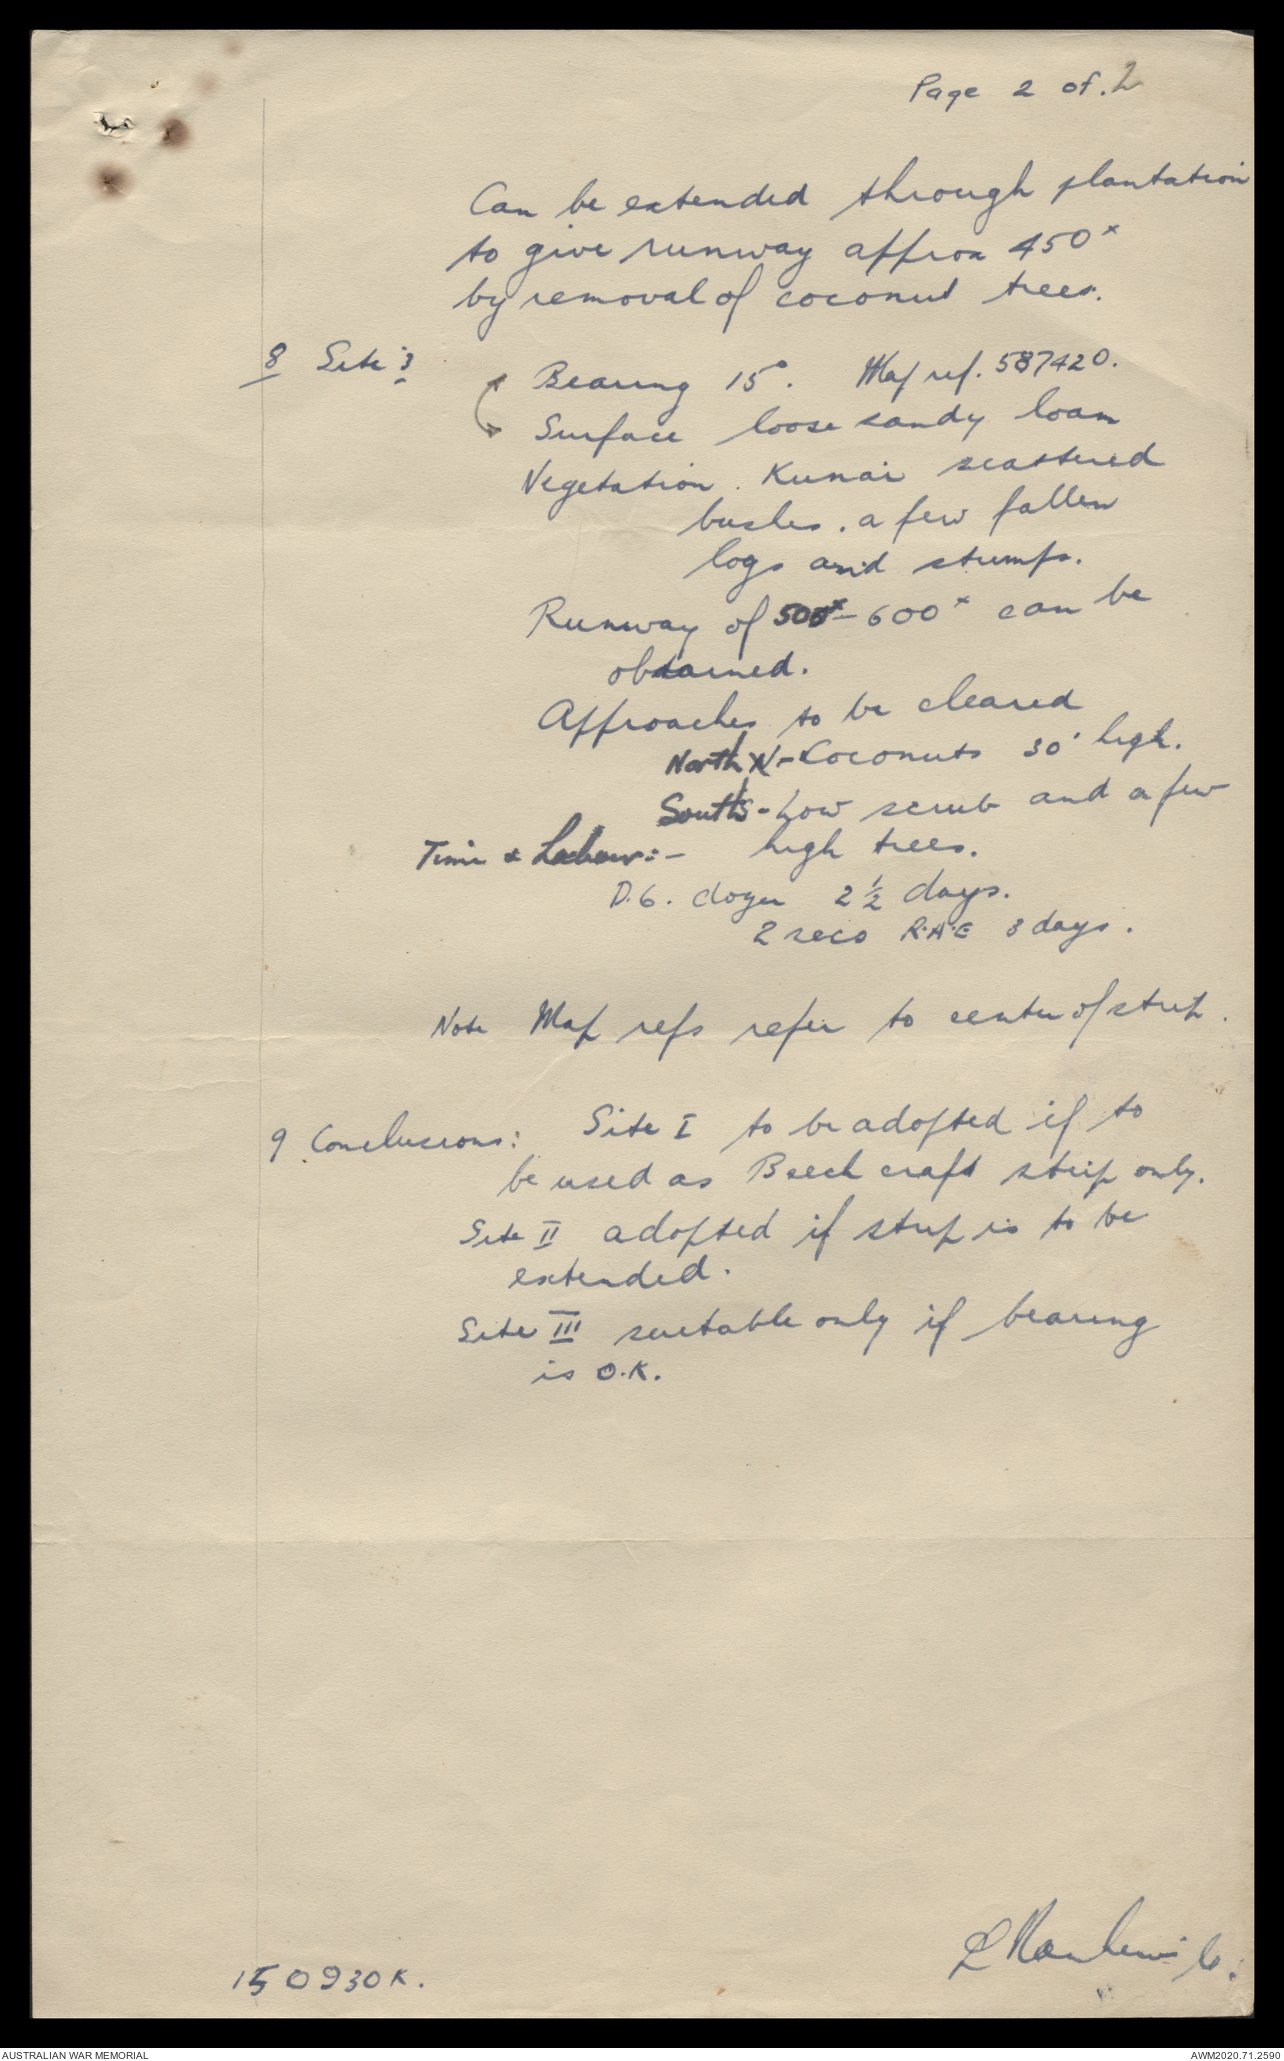 Page 2 of. 2
Can be extended through plantation
to give runway approx 450ˣ
by removal of coconut trees.
8 Site 3
Bearing 15°. Map ref. 587420.
Surface loose sandy loam
Vegetation. Kunai scattered
bushes. a few fallen
logs and stumps.
Runway of 500ˣ - 600ˣ can be
obtained.
Approaches to be cleared
North N - Coconuts 30' high.
South - Low scrub and a few
high trees.
Time & Labour:-
D.6. dozer 2 ½ days.
2 secs R.A.E 3 days.
Note Map refs refer to center of strip.
9 Conclusions: Site I to be adopted if to
be used as Beechcraft strip only.
Site II adopted if strip is to be
extended.
Site III suitable only if bearing
is O.K.
150930K.
AUSTRALIAN WAR MEMORIAL
AWM2020.71.2590